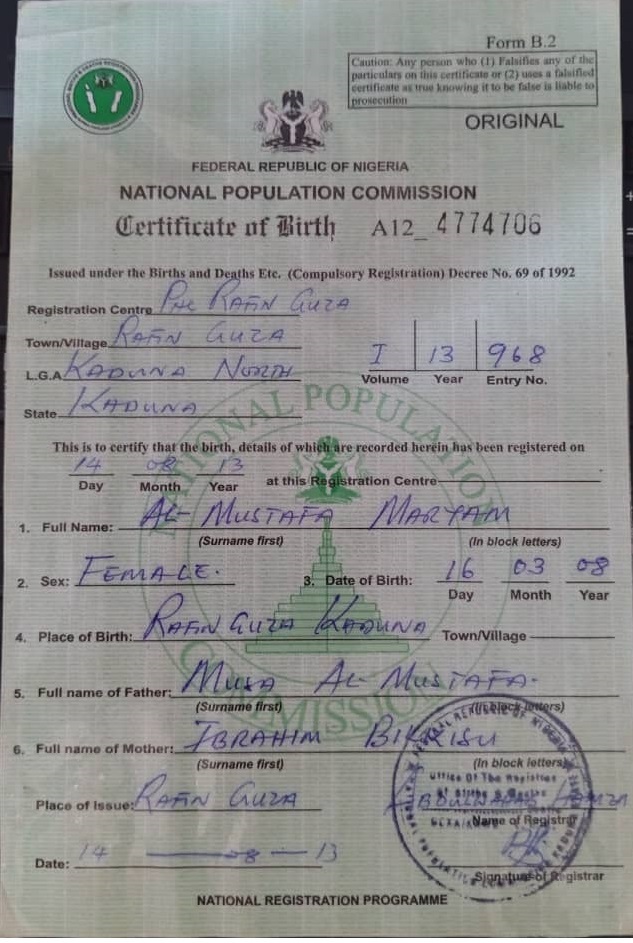 Form B.2
Caution: Any person who (1) Falsifies any of the
particulars on this certificate or (2) uses a falsified
certificate as true knowing it to be false is liable to
prosecution
ORIGINAL
FEDERAL REPUBLIC OF NIGERIA
NATIONAL POPULATION COMMISSION
Certificate of Birth A12_4774706
Issued under the Births and Deaths Etc. (Compulsory Registration) Decree No. 69 of 1992
Registration Centre PHC RAFIN GUZA
Town/Village RAFIN GUZA
L.G.A KADUNA NORTH
I 13 968
Volume Year Entry No.
State KADUNA
NATIONAL POPULATION COMMISSION
This is to certify that the birth, details of which are recorded herein has been registered on
14 08 13
Day Month Year at this Registration Centre
1. Full Name: AL-MUSTAFA MARYAM
(Surname first) (In block letters)
2. Sex: FEMALE. 3. Date of Birth: 16 03 08
Day Month Year
4. Place of Birth: RAFIN GUZA KADUNA Town/Village
5. Full name of Father: MUSA AL-MUSTAFA.
(Surname first) (In block letters)
6. Full name of Mother: IBRAHIM BIKKISU
(Surname first) (In block letters)
Place of Issue: RAFIN GUZA
Name of Registrar
Date: 14 — 08 — 13
Signature of Registrar
FEDERAL REPUBLIC OF NIGERIA
Office Of The Registrar
Of Births &
NATIONAL REGISTRATION PROGRAMME